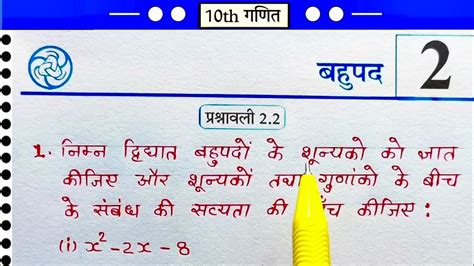 10th गणित
बहुपद
2
प्रश्नावली 2.2
1. निम्न द्विघात बहुपदों के शून्यको को ज्ञात
कीजिए और शून्यकों तथा गुणांको के बीच
के संबंध की सत्यता की कीजिए :
(i) x² - 2x - 8